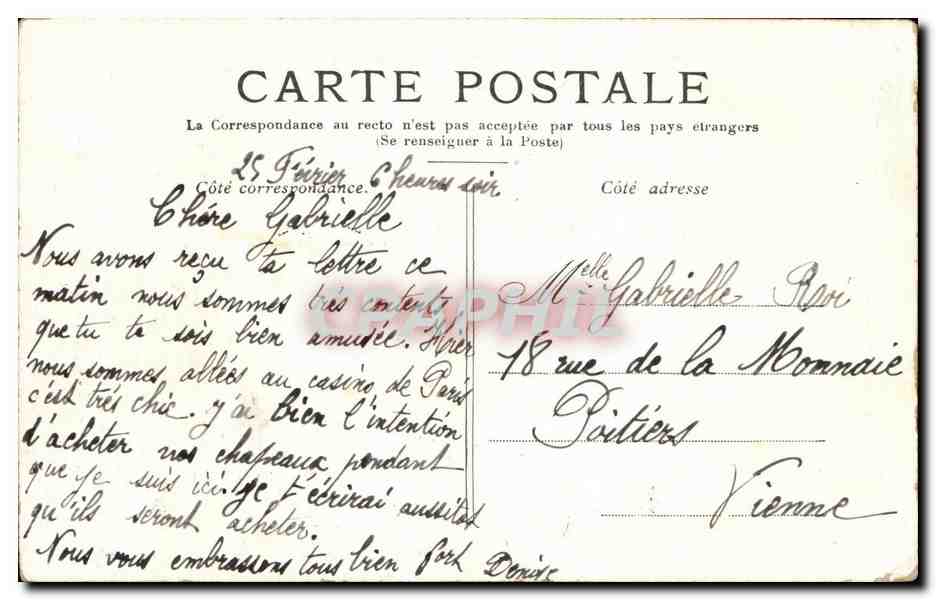 CARTE POSTALE
La Correspondance au recto n'est pas acceptée par tous les pays étrangers
(Se renseigner à la Poste)
25 Février 6 heures soir
Côté correspondance.
Côté adresse
Chére Gabrielle
Nous avons reçu ta lettre ce
matin nous sommes très contents
que tu ta sois bien amusée. Hier
nous sommes allées au casino de Paris
c'est très chic. j'ai bien l'intention
d'acheter nos chapeaux pendant
que je suis ici. je t'écrirai aussitot
qu'ils seront acheter.
Nous vous embrassons tous bien fort Denise
Melle Gabrielle Roi
18 rue de la Monnaie
Poitiers
Vienne
CPAPHIL